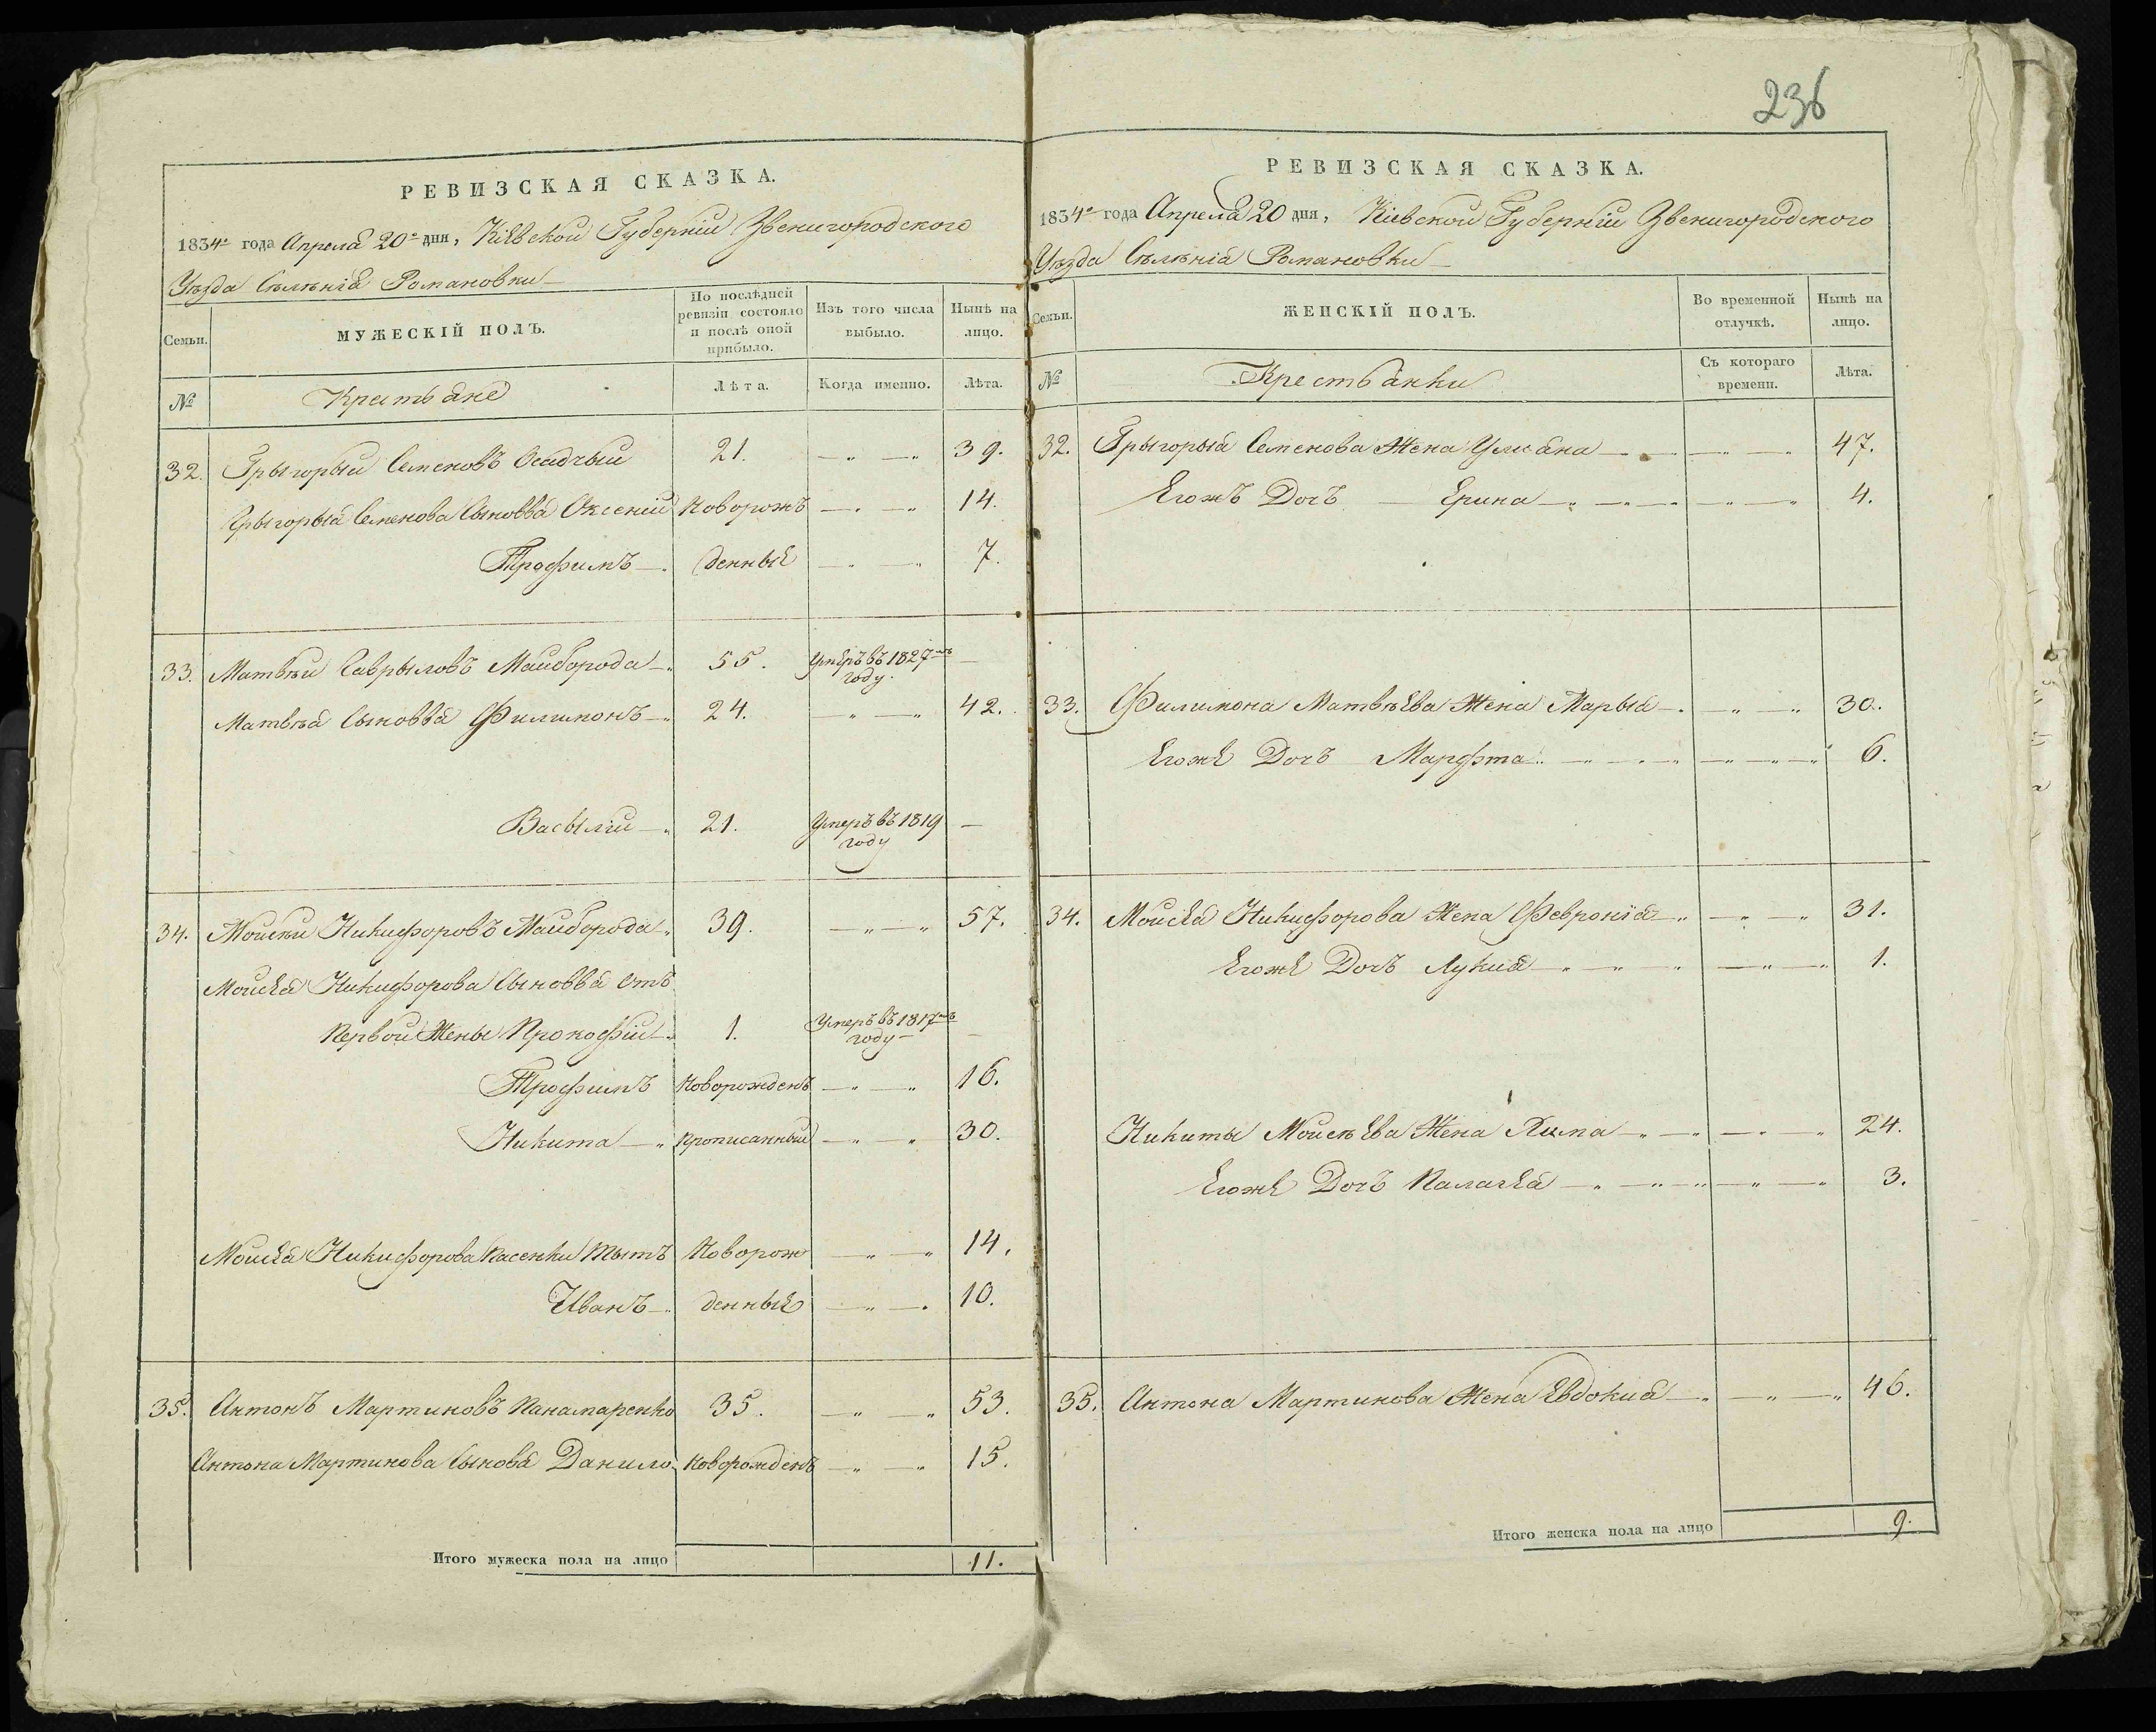 236
РЕВИЗСКАЯ СКАЗКА.
1834го года Апреля 20го дня, Кіевской Губерніи Звенигородского
Уѣзда Сѣлѣнія Романовки
Семьи.
МУЖЕСКІЙ ПОЛЪ.
По послѣдней ревизіи состояло и послѣ оной прибыло.
Изъ того числа выбыло.
Нынѣ на лицо.
№
Крестьяне
Лѣта.
Когда именно.
Лѣта.
32. Грыгорый Семеновъ Осадчый 21. 39.
Грыгорыя Семенова Сыновья Оксеній Новорож 14.
Трофимъ денные 7.
33. Матвѣй Гаврыловъ Майборода 55. Умеръ въ 1827мъ году
Матвѣя Сыновья Филимонъ 24. 42.
Васылій 21. Умеръ въ 1819 году
34. Мойсѣй Никифоровъ Майборода 39. 57.
Мойсея Никифорова Сыновья Отъ
Первой Жены Прокофій 1. Умеръ въ 1817мъ году
Трофимъ Новорожденъ 16.
Никита Прописанный 30.
Мойсея Никифорова Пасенки Тытъ Новорож 14.
Иванъ денные 10.
35. Антонъ Мартиновъ Панамаренко 35. 53.
Антона Мартинова Сыновя Данило Новорожденъ 15.
Итого мужеска пола на лицо 11.
РЕВИЗСКАЯ СКАЗКА.
1834го года Апреля 20 дня, Кіевской Губерніи Звенигородского
Уѣзда Сѣлѣнія Романовки
Семьи.
ЖЕНСКІЙ ПОЛЪ.
Во временной отлучкѣ.
Нынѣ на лицо.
№
Крестьянки
Съ котораго времени.
Лѣта.
32. Грыгорыя Семенова Жена Улияна 47.
Егожъ Дочъ Ерина 4.
33. Филимона Матвѣева Жена Марыя 30.
Егоже Дочъ Марфта 6.
34. Мойсея Никифорова Жена Февронія 31.
Егоже Дочъ Лукия 1.
Никиты Мойсѣева Жена 24.
Егоже Дочъ Палагея 3.
35. Антона Мартинова Жена Евдокия 46.
Итого женска пола на лицо 9.